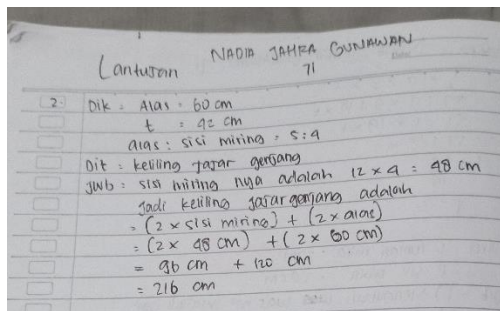 NADIA JAHRA GUNAWAN
Lanturan
71
2. Dik : Alas = 60 cm
t = 42 cm
alas : sisi miring = 5:4
Dit : keliling jajar genjang
Jwb : sisi miring nya adalah 12 x 4 = 48 cm
Jadi keliling jajar genjang adalah
= (2 x sisi miring) + (2 x alas)
= (2 x 48 cm) + (2 x 60 cm)
= 96 cm + 120 cm
= 216 cm